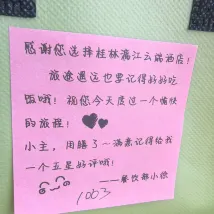 感谢您选择桂林漓江云端酒店！
旅途遥远也要记得好好吃
饭哦！祝您今天度过一个愉快
的旅程！
小主，用膳了~满意记得给我
一个五星好评哦！
——餐饮部小徐
1003